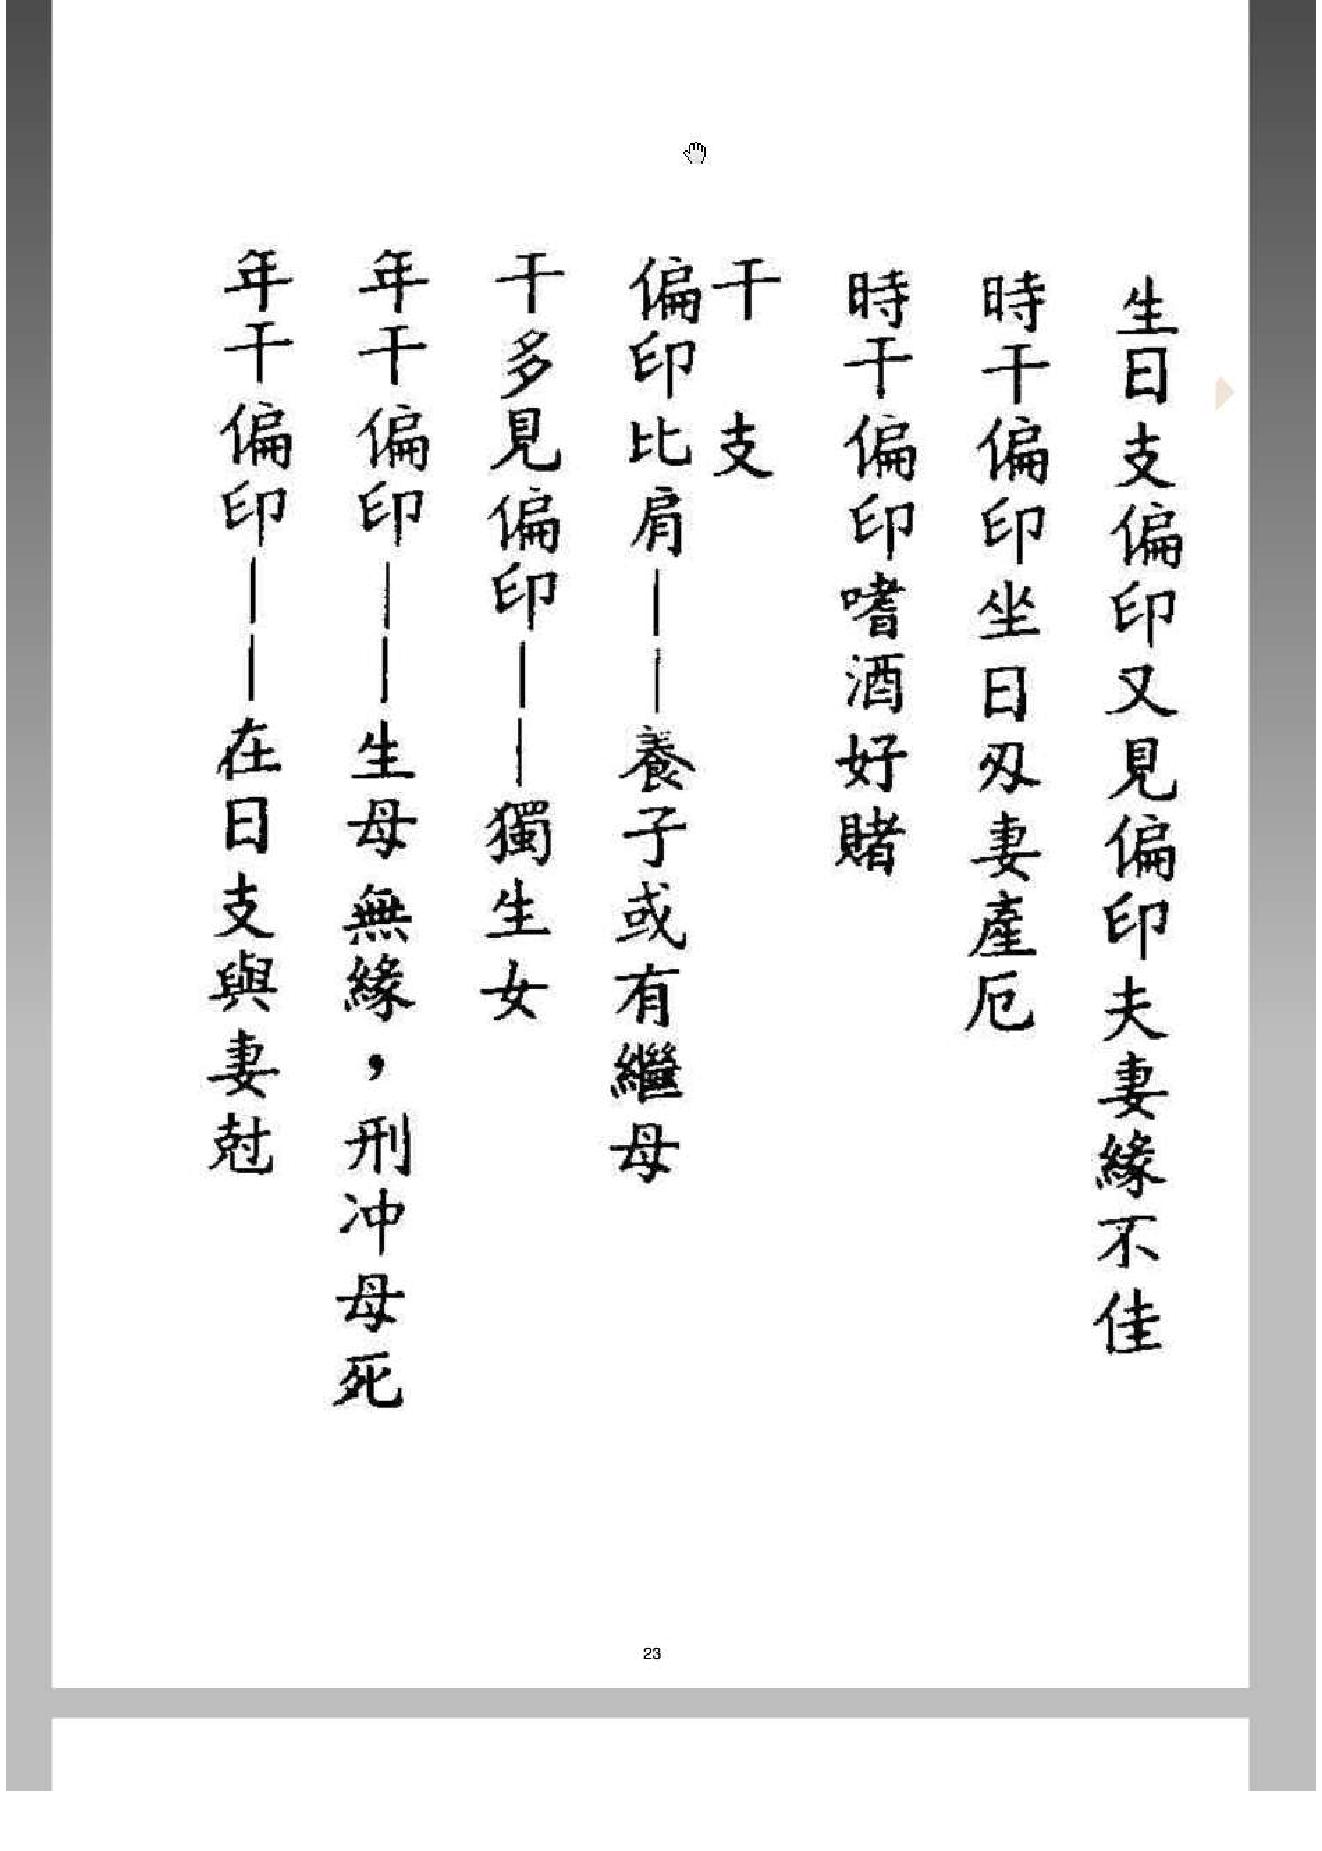 生日支偏印又見偏印夫妻緣不佳
時干偏印坐日刄妻產厄
時干偏印嗜酒好賭
干　支
偏印比肩——養子或有繼母
干多見偏印——獨生女
年干偏印——生母無緣，刑冲母死
年干偏印——在日支與妻尅
23